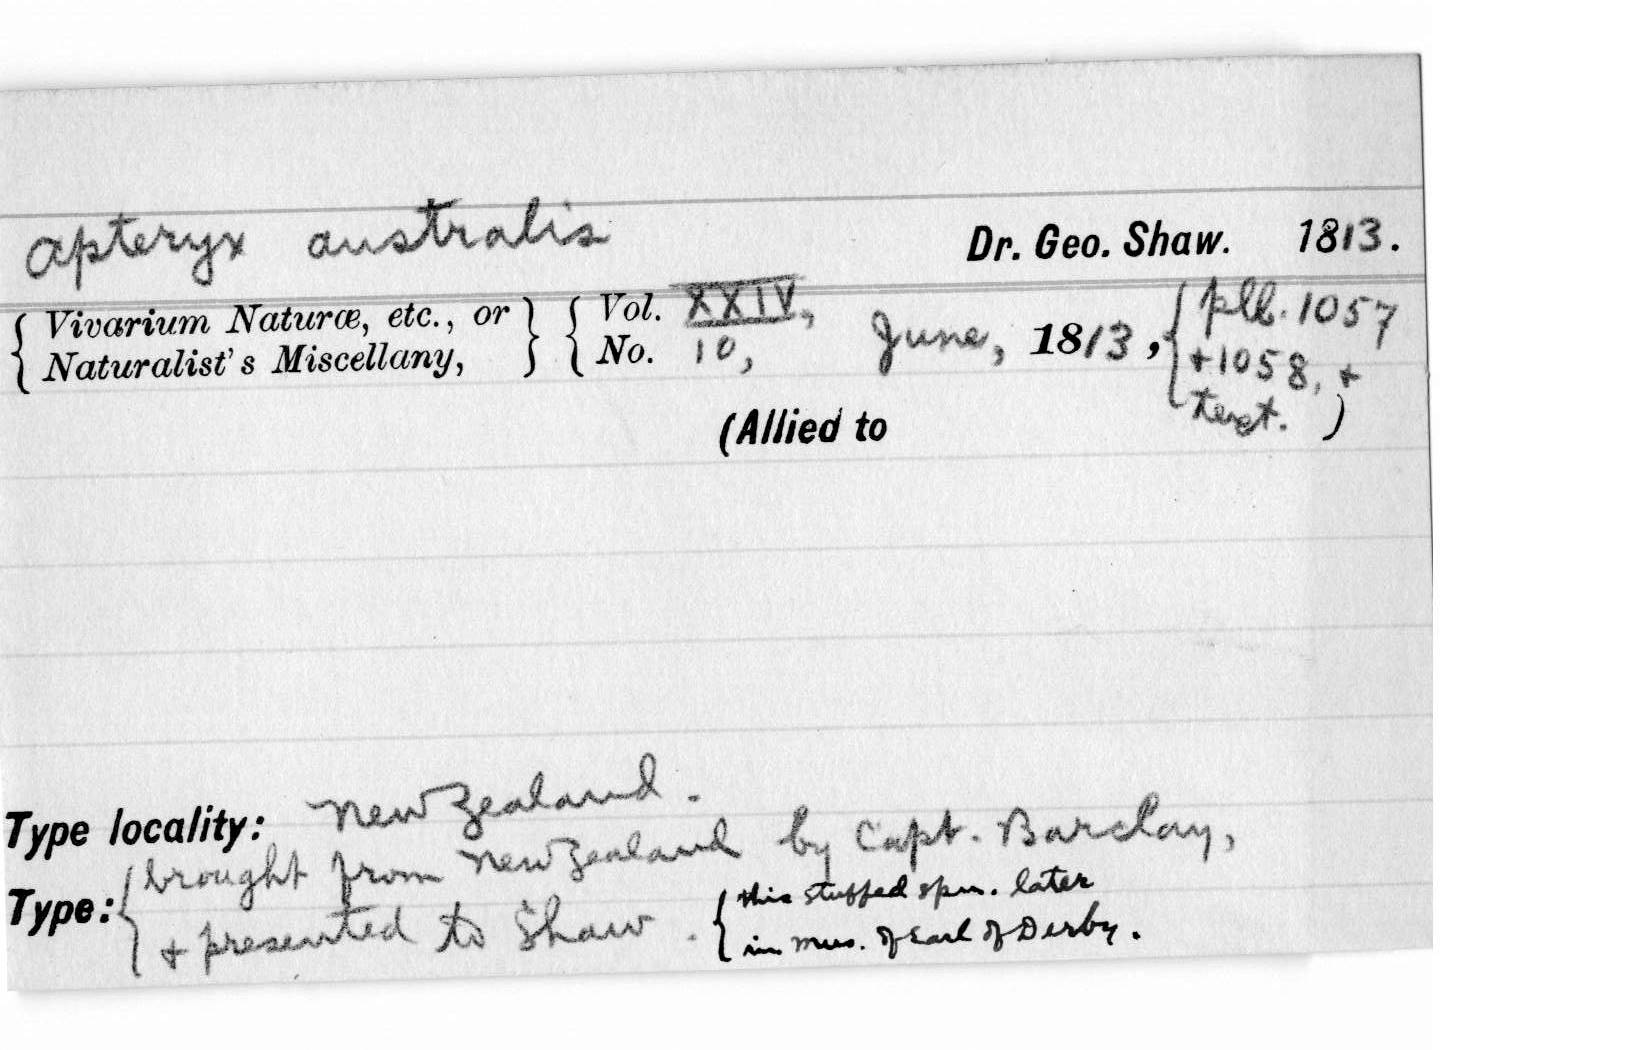 Apteryx australis Dr. Geo. Shaw. 1813.
{ Vivarium Naturæ, etc., or } { Vol. XXIV, June, 1813, { pll. 1057
Naturalist's Miscellany, No. 10, + 1058, +
(Allied to text. )
Type locality: New Zealand.
Type: { brought from New Zealand by Capt. Barclay,
+ presented to Shaw. { this stuffed spm. later
in mus. of Earl of Derby.